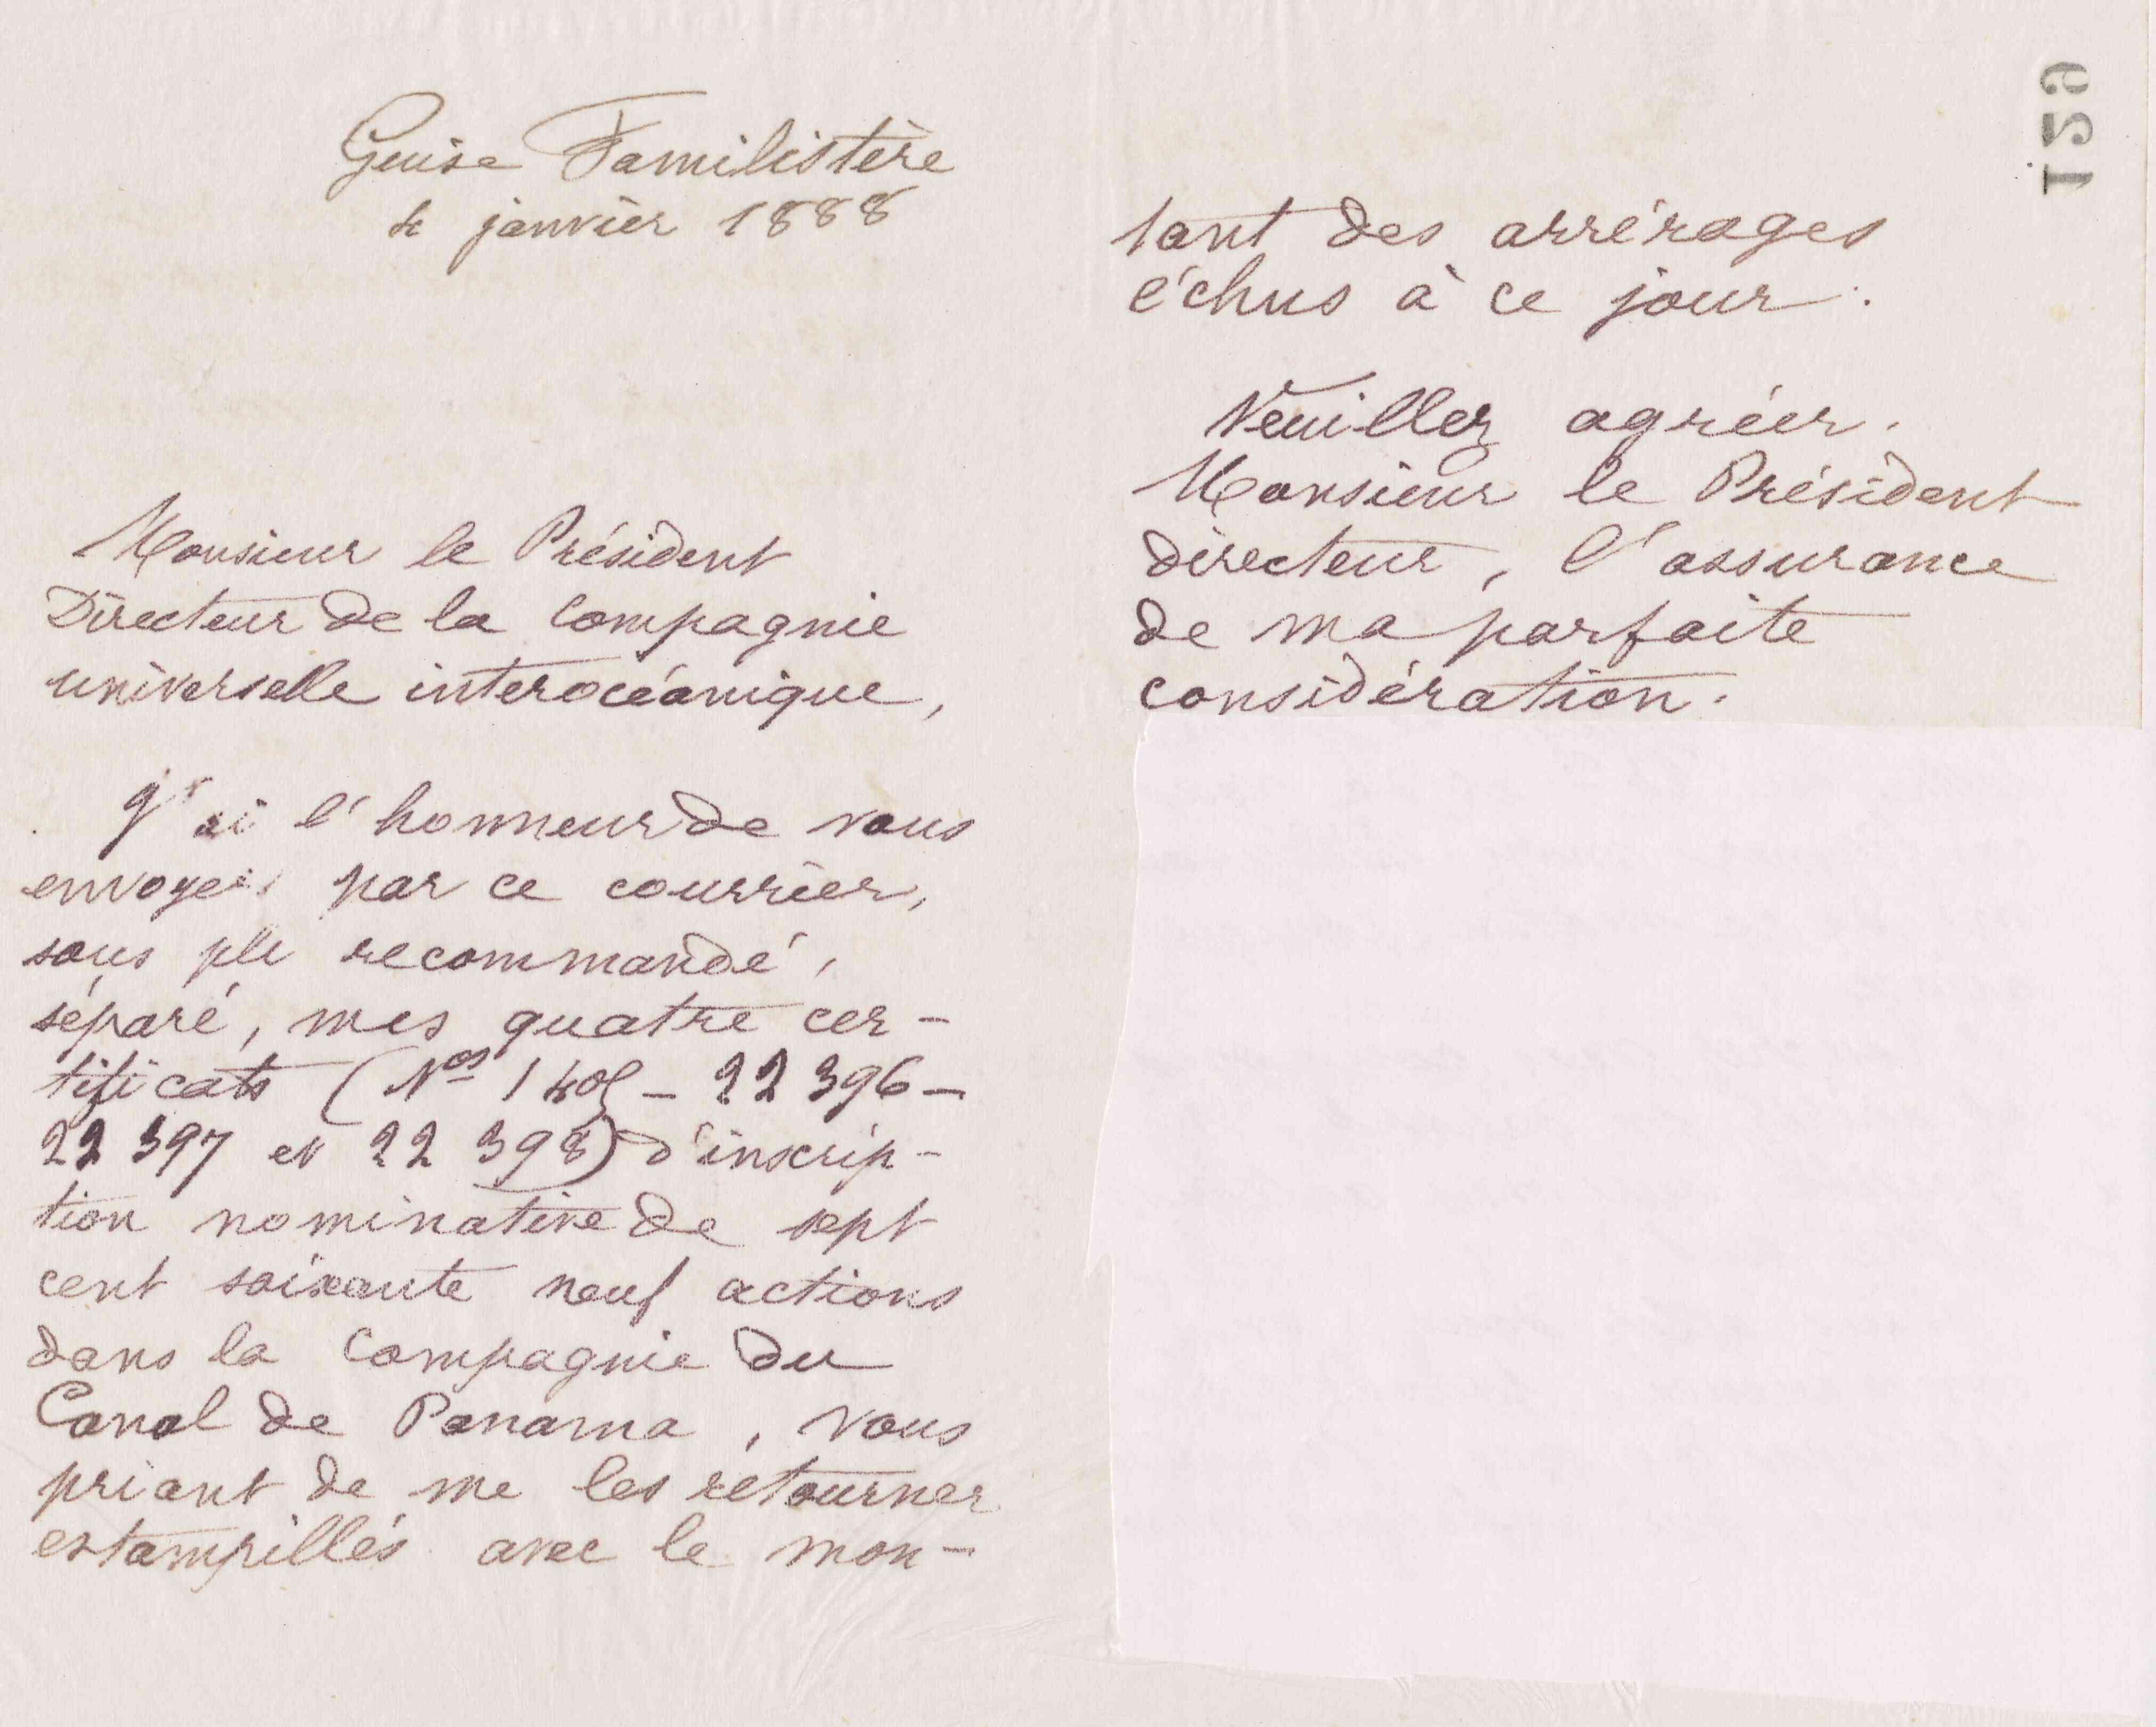 Guise Familistère
4 janvier 1888
Monsieur le Président
Directeur de la Compagnie
universelle interocéanique,
J'ai l'honneur de vous
envoyer par ce courrier,
sous pli recommandé,
séparé, mes quatre cer-
tificats (Nos 1405 - 22 396 -
22 397 et 22 398) d'inscrip-
tion nominative de sept
cent soixante neuf actions
dans la Compagnie du
Canal de Panama, vous
priant de me les retourner
estampillés avec le mon-
tant des arrérages
échus à ce jour.
Veuillez agréer.
Monsieur le Président
directeur, l'assurance
de ma parfaite
considération.